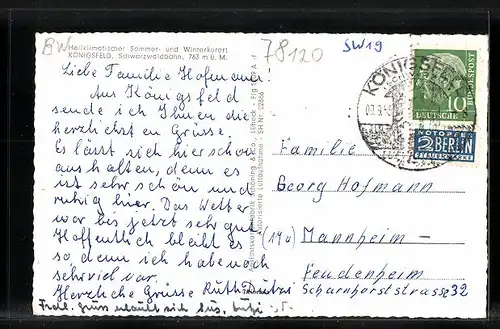 BW
78120
SW19
Heilklimatischer Sommer- und Winterkurort
KÖNIGSFELD, Schwarzwaldbahn, 763 m ü. M.
Liebe Familie Hofmann
Aus Königsfeld
sende ich Ihnen die
herzlichsten Grüsse.
Es lässt sich hier schon
aushalten, denn es
ist sehr schön und
ruhig hier. Das Wetter
war bis jetzt sehr gut
Hoffentlich bleibt es
so, denn ich habe noch
sehr viel vor.
Herzliche Grüsse Ruth
Schöning & Co., Lübeck
KÖNIGSFELD
10
DEUTSCHE
BUNDESPOST
NOTOPFER
2 BERLIN
STEUERMARKE
Familie
Georg Hofmann
(17a) Mannheim-
Feudenheim
Scharnhorststrasse 32